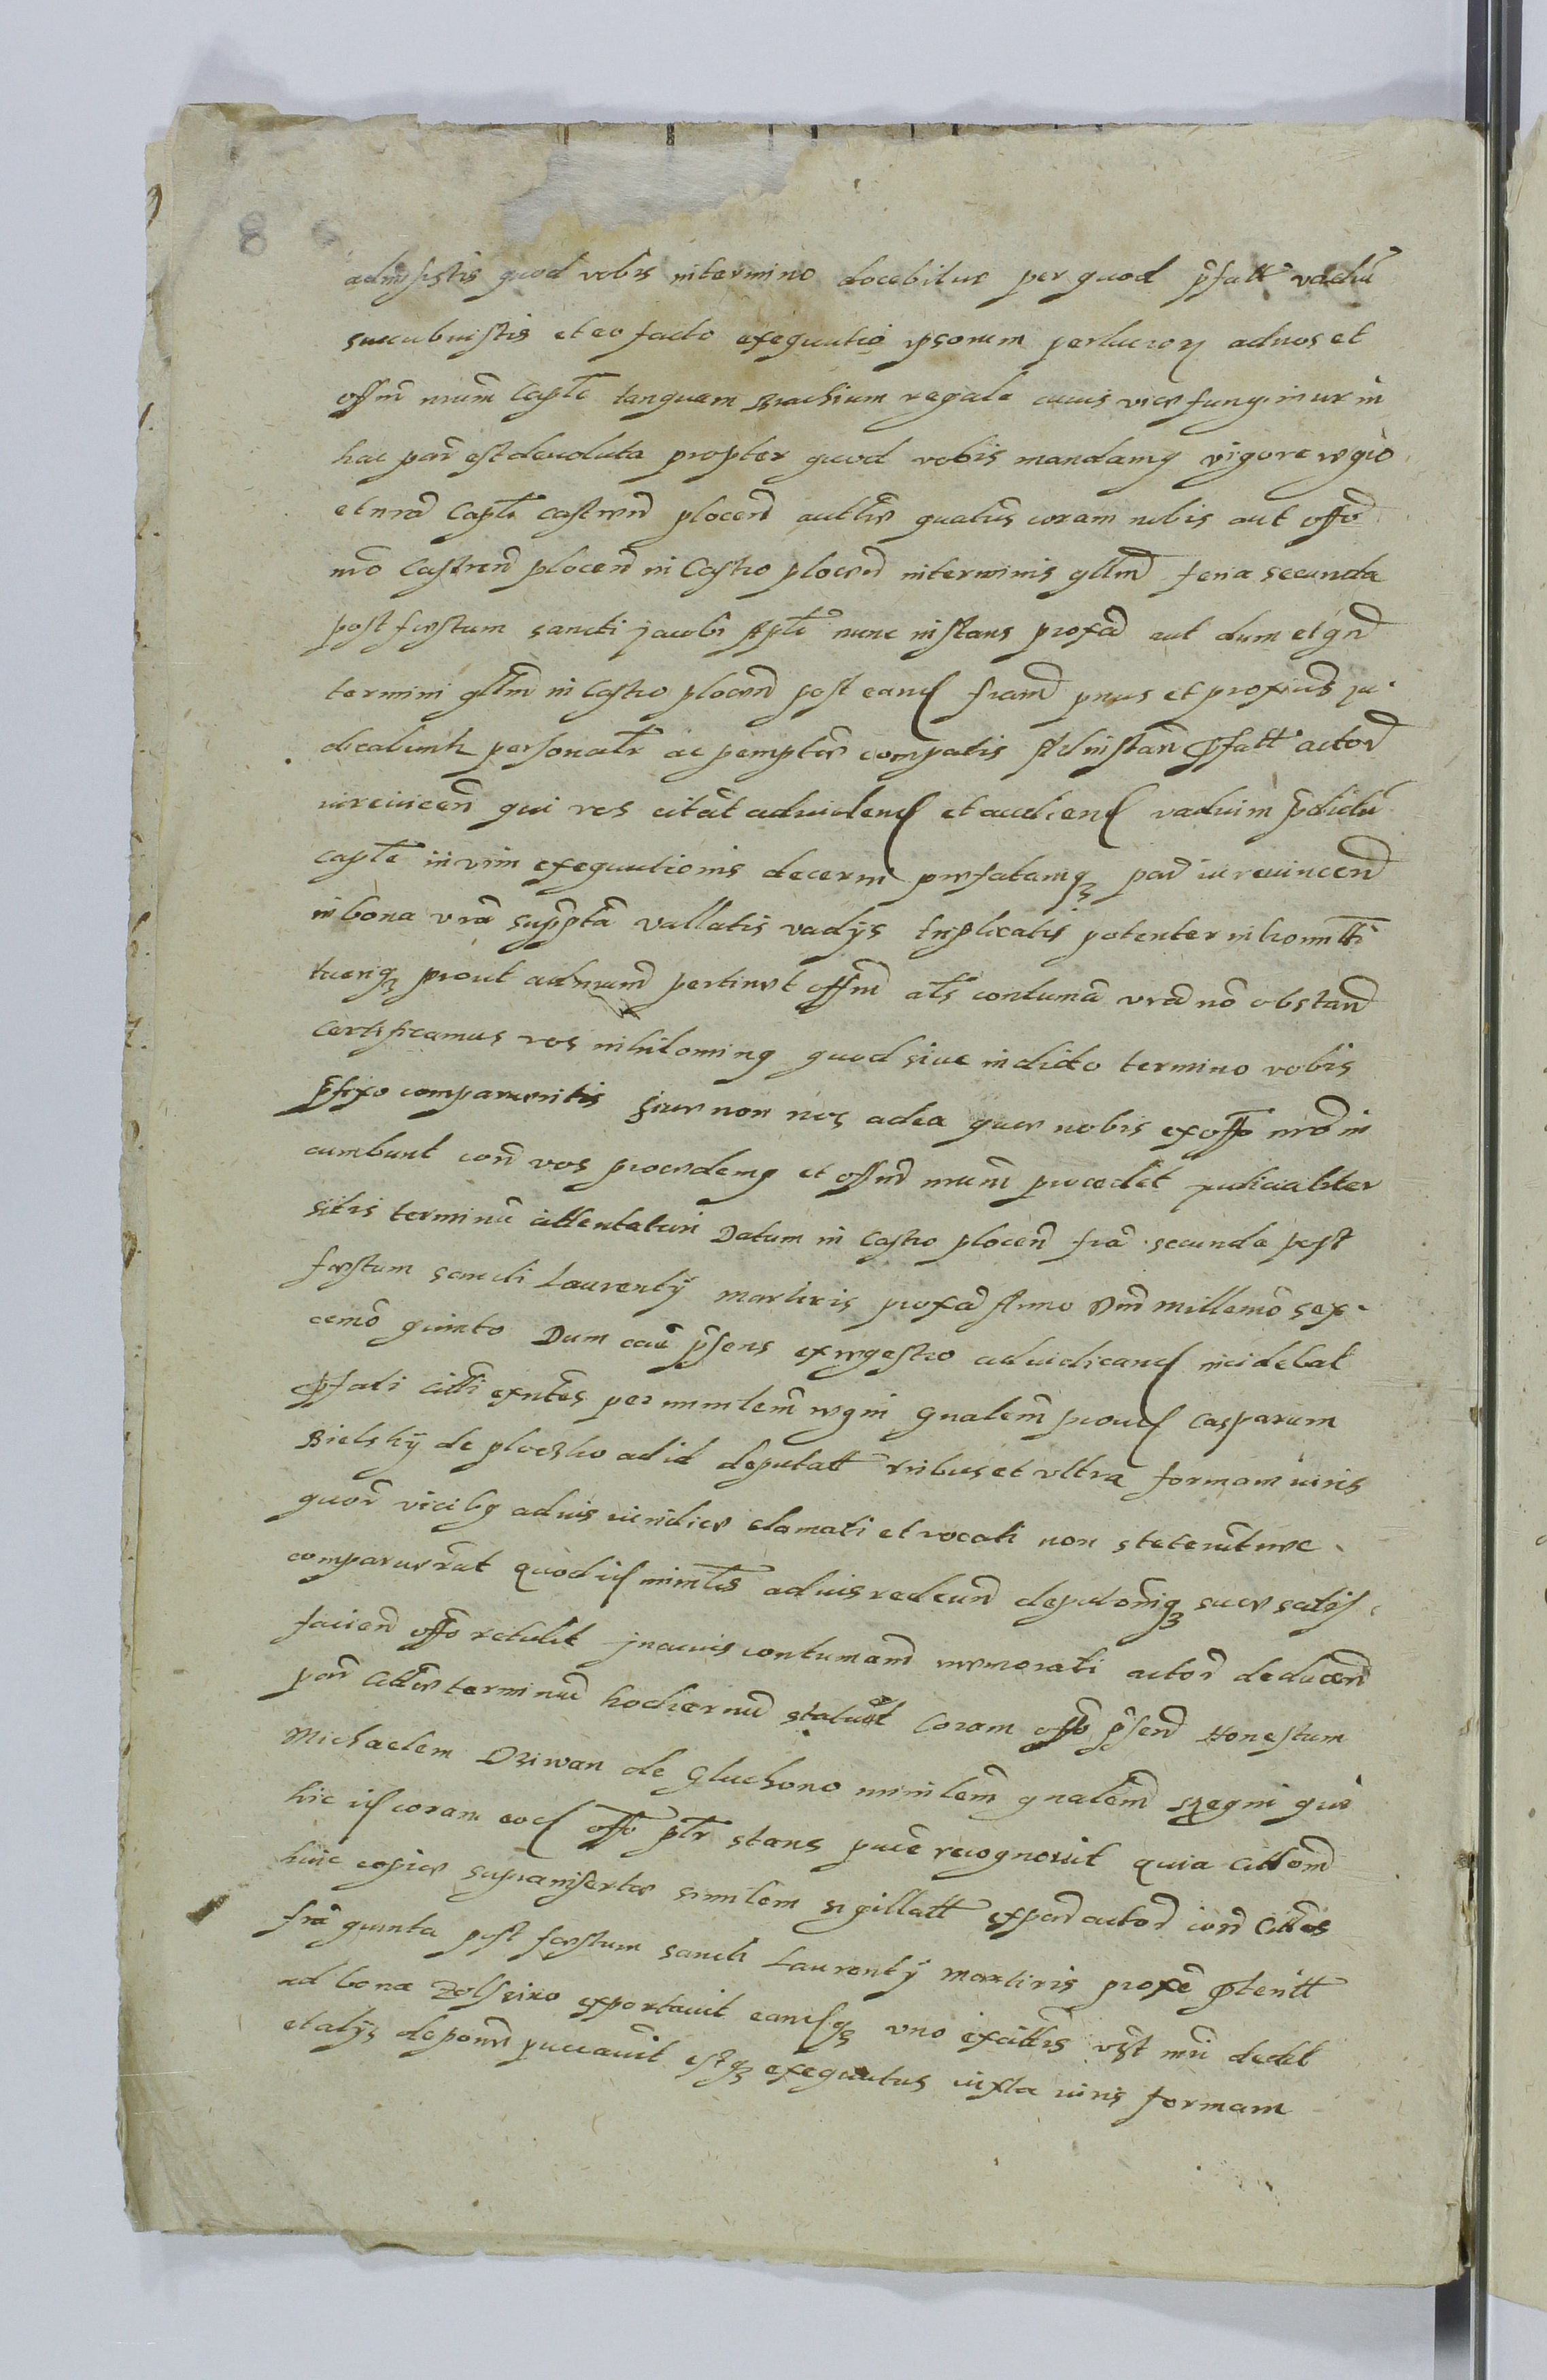 8
admisistis quod vobis in termino docebitur per quod pfatt vadiu
succubuistis et eo facto exequutio ipsorum per lucron ad nos et
offm nrum Captle tanquam Brachium regale cuius vices fungimur in
hac par est devoluta propter quod vobis mandamq vigore regio
et nrad Captli castren plocen autte quatus coram nobis aut offo
nro Castren plocen in Castro plocen in terminis gllm feria secunda
post festum sancti Jacobi Apli nunc instans proxa aut dum et qn
termini gllm in Castro plocen post eand fram prius et proxius ju
dicabunt personalr ac pemptor compatis Ad instan pfatt actor
iurevicen qui vos citat ad vidend et audiend vadium pdictu
captle in vim exequutionis decerni prefatamq par iurevincen
in bona vra suppta vallatis vadys triplicatis potenter intromitti
tueriq prout ad nrum pertinet offm als contuma vra no obstan
Certificamus vos nihilominq quod sive in dicto termino vobis
pfixo comparueritis sive non nos ad ea que nobis ex offo nro in
cumbunt con vos procedemq et offm nrum procedet judicialiter
sitis terminu attentaturi Datum in Castro plocen fra secunda post
festum sancti Laurenty martiris proxa Anno Dni Millemo sex
cemo quinto Dum cau psens ex regestro ad iudicand incidebat
pfati citti exntes per minlem regni gnalem provid Casparum
Bielsky de ploczko ad id deputatt tribus et ultra formam iuris
quor vicibq ad ius iuridice clamati et vocati non steterut nec
comparuerut Quod is minlis ad ius redeun deputoniq sue satis
facien offo retulit In cuius contumam memorati actor deducen
par Citte terminu hodiernu statuet Coram offo psen Honestum
Michaelem Dziwan de Gluchowo minlem gnalem Regni qui
hic is coram eod offo pltr stans puce recognovit quia Cittom
huic copie suprainserte similem sigillatt ex par actor con Cittos
fra quinta post festum sancti Laurenty Martiris proxe pteritt
ad bona exportavit eandq uno ex cittis dedit
et alys deponi puccavit estq exequutus iuxta iuris formam